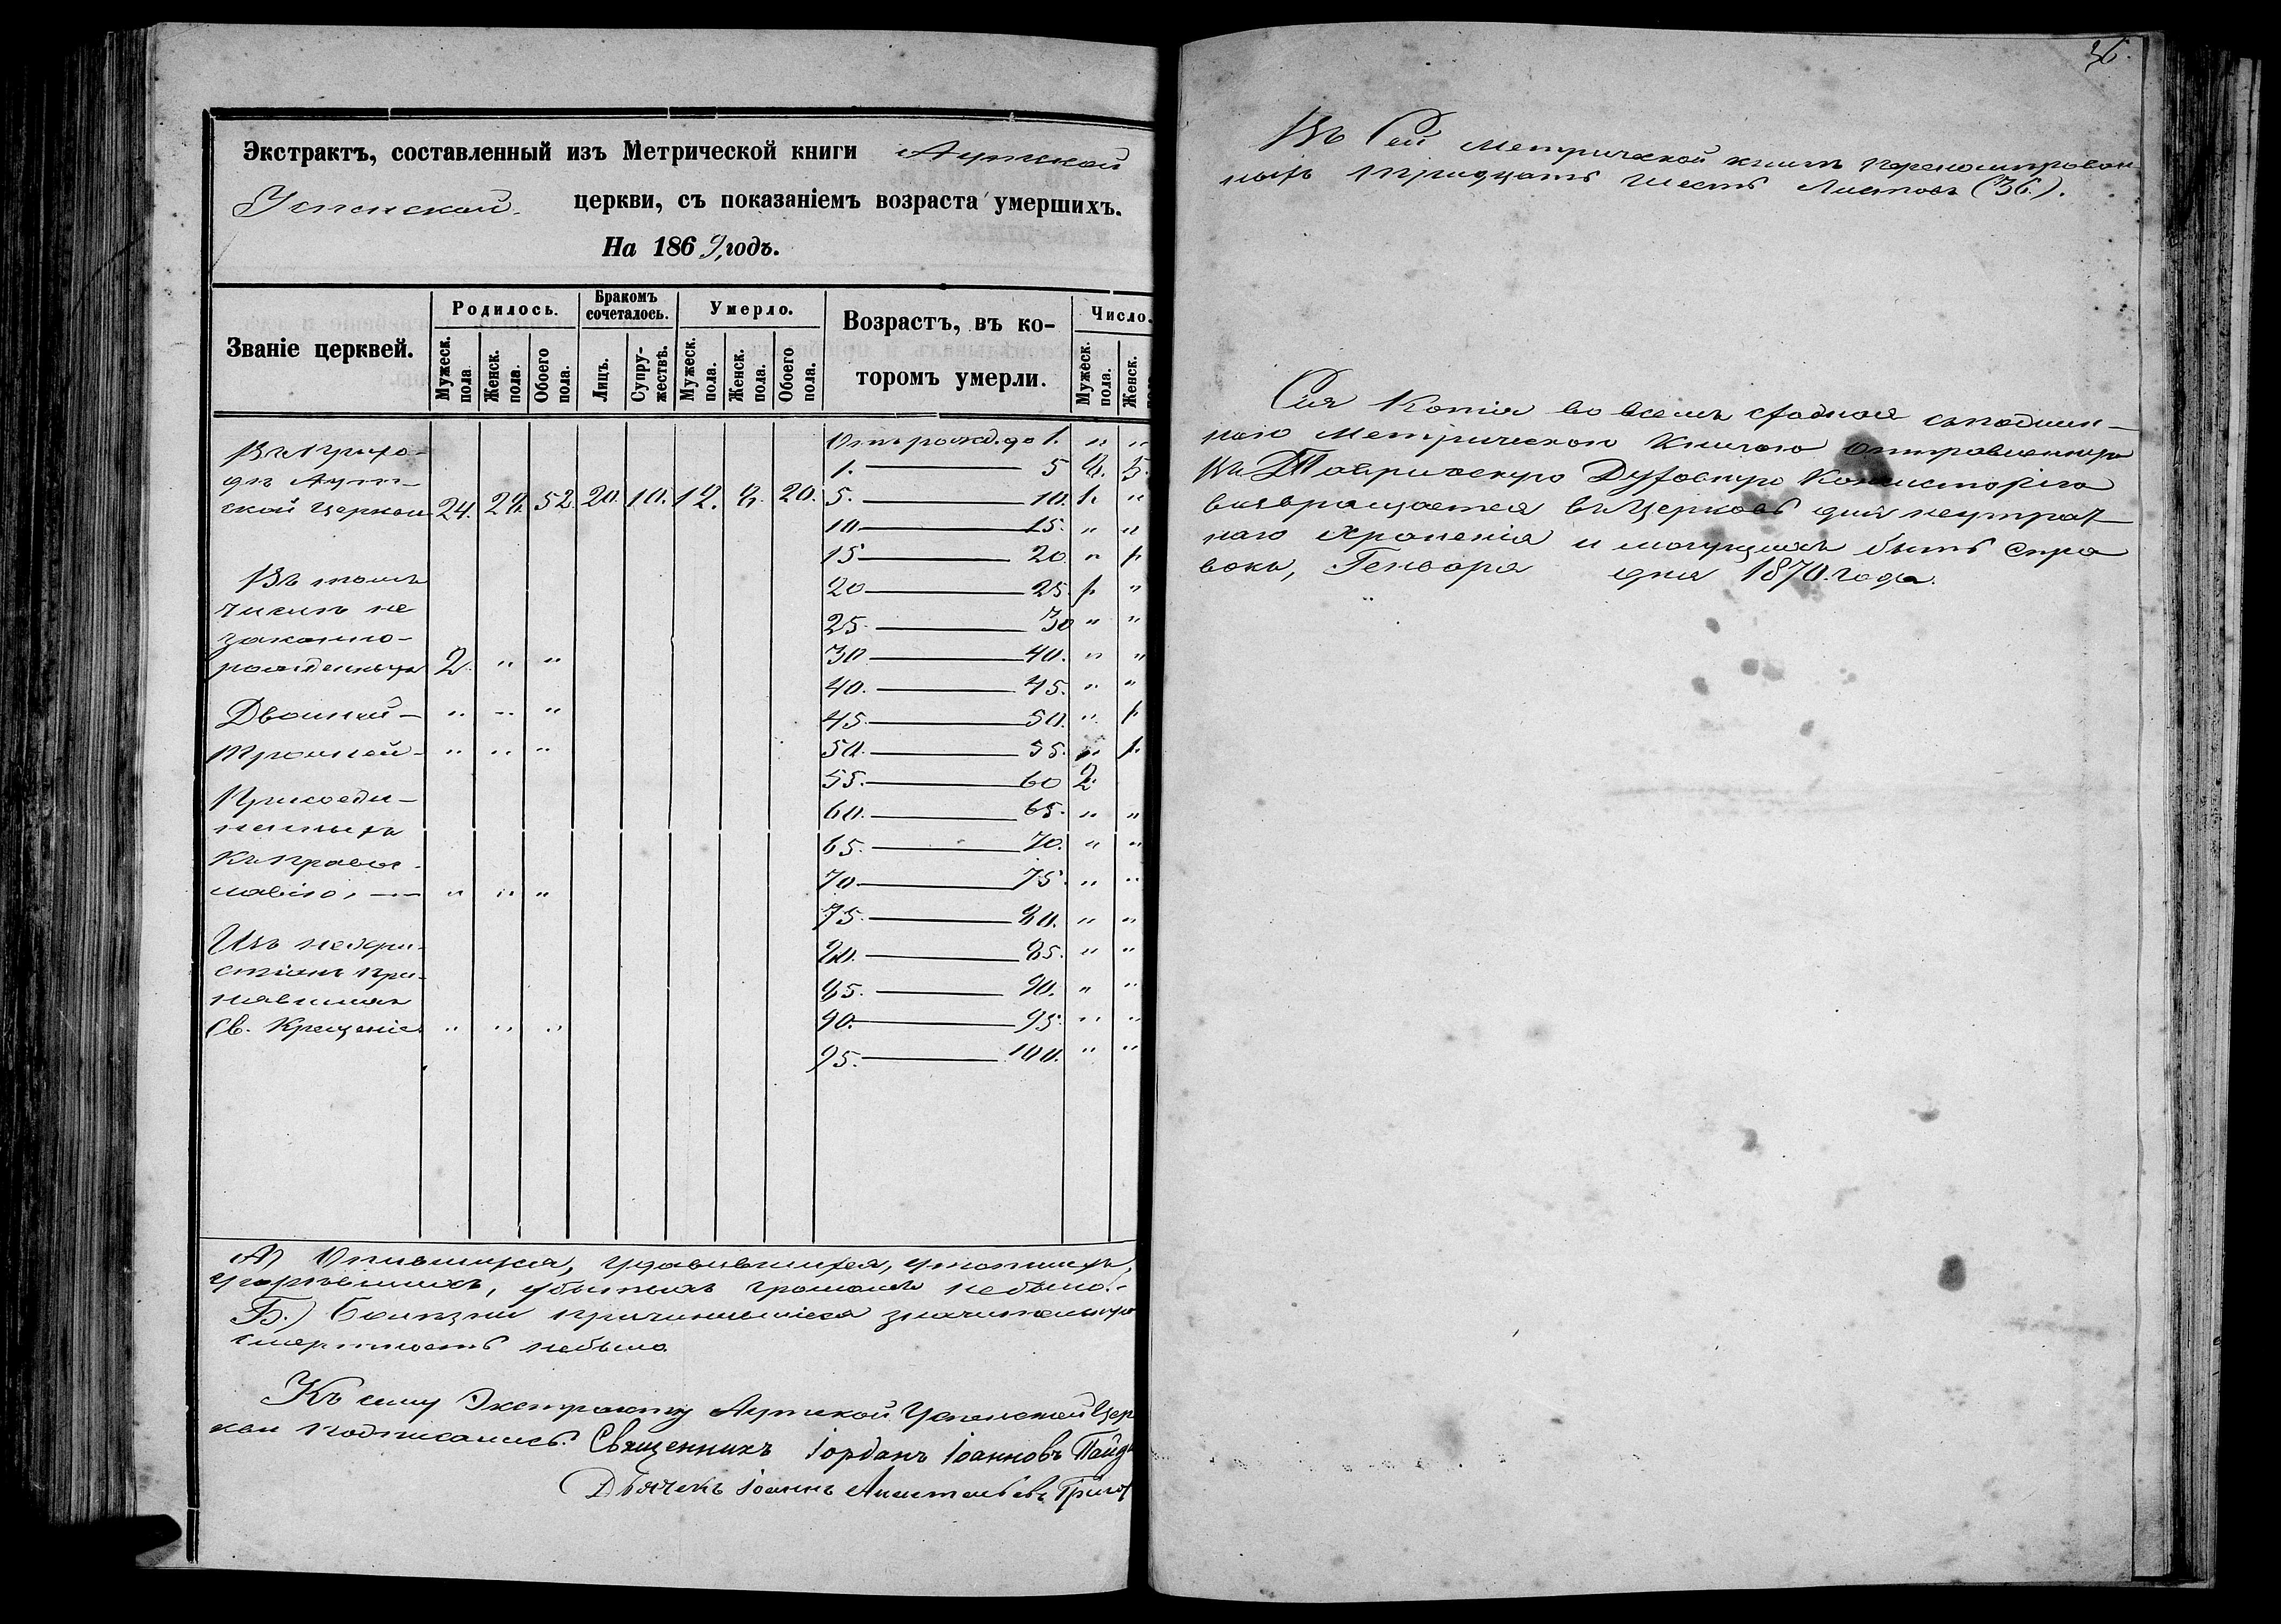 Экстрактъ, составленный изъ Метрической книги Аутской
Успенской церкви, съ показаніемъ возраста умершихъ.
На 1869, годъ.
Званіе церквей. Родилось. Бракомъ сочеталось. Умерло. Возрастъ, въ ко-тором умерли. Число.
Мужеск. пола Женск. пола. Обоего пола. Лицъ. Супру-жествъ. Мужеск. пола. Женск. пола. Обоего пола. Мужеск. пола. Женск.
Отъ рожд. до 1. " "
Въ прихо-
1. — 5 8. 5.
дѣ Аут-
ской Церкви 24. 28. 52. 20. 10. 12. 8. 20. 5. — 10. 1. "
10 — 15. " "
15 — 20. " 1.
Въ томъ
20 — 25. 1. "
числѣ не
25. — 30 " "
законно-
рожденныхъ 2. " "
30. — 40. " "
40. — 45. " "
Двойней — " " "
45. — 50. " 1.
Тройней - " " "
50. — 55. " 1.
55. — 60 2.
Присоеди-
60. — 65. " "
ненныхъ
65. — 70. " "
Къ Правос-
70 — 75. " "
лавію, — " " "
75. — 80. " "
Изъ нехри-
80. — 85. " "
стіанъ при-
85. — 90. " "
нявшихъ
Св. Крещеніе " " "
90. — 95. " "
95. — 100. " "
А) Опившихся, удавившихся, утопшихъ,
угорѣвшихъ, убитыхъ громомъ небыло.-
Б.) Болѣзни причинившіеся значительную
смертность небыло.
Къ сему Экстракту Аутской Успенской Цер
кви подписались: Священникъ Іорданъ Іоанновъ
Дьячекъ Іоаннъ
36.
Въ Сей Метрической книгѣ переномерован
ныхъ тридцать шесть Листовъ (36.).
Сія Копія во всемъ сходная съ подлин-
ною Метрическою Книгою отправленную
въ Таврическую Духовную Консисторію
възвращается въ Церковь для неутрат-
наго храненія и могущихъ быть спра
вокъ, Генваря дня 1870. года.